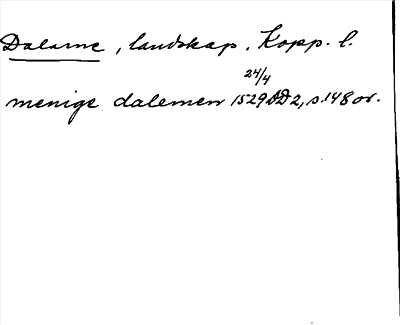 Dalarne, landskap, Kopp. l.
menige dalemen 24/4 1529 DD2, s. 148 or.